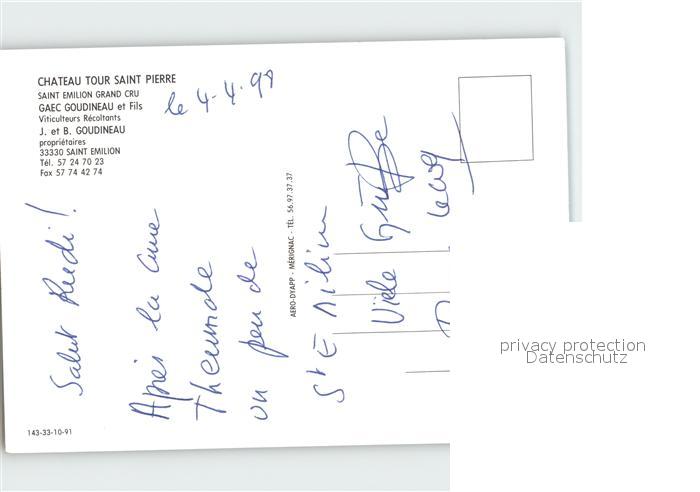 CHATEAU TOUR SAINT PIERRE
SAINT EMILION GRAND CRU
GAEC GOUDINEAU et Fils
Viticulteurs Récoltants
J. et B. GOUDINEAU
propriétaires
33330 SAINT EMILION
Tél. 57 24 70 23
Fax 57 74 42 74
le 4.4.98
Salut Ruedi!
Après la cure
Thermale
un peu de
St E milion
Viele Grüsse
AERO-DYAPP - MÉRIGNAC - TÉL. 56.97.37.37
143-33-10-91
privacy protection
Datenschutz